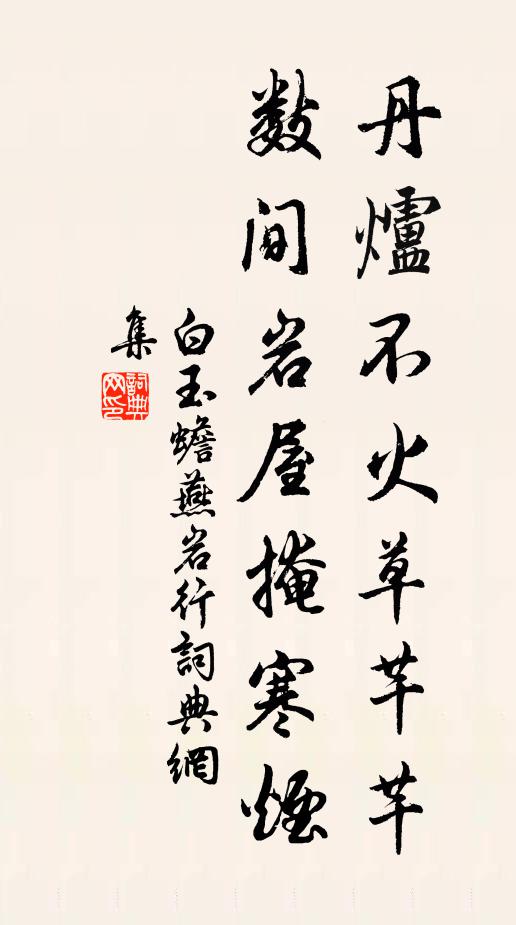 丹爐不火草芊芊
数間岩屋掩寒煙
白玉蟾燕岩行詞典網
集
詞典网印